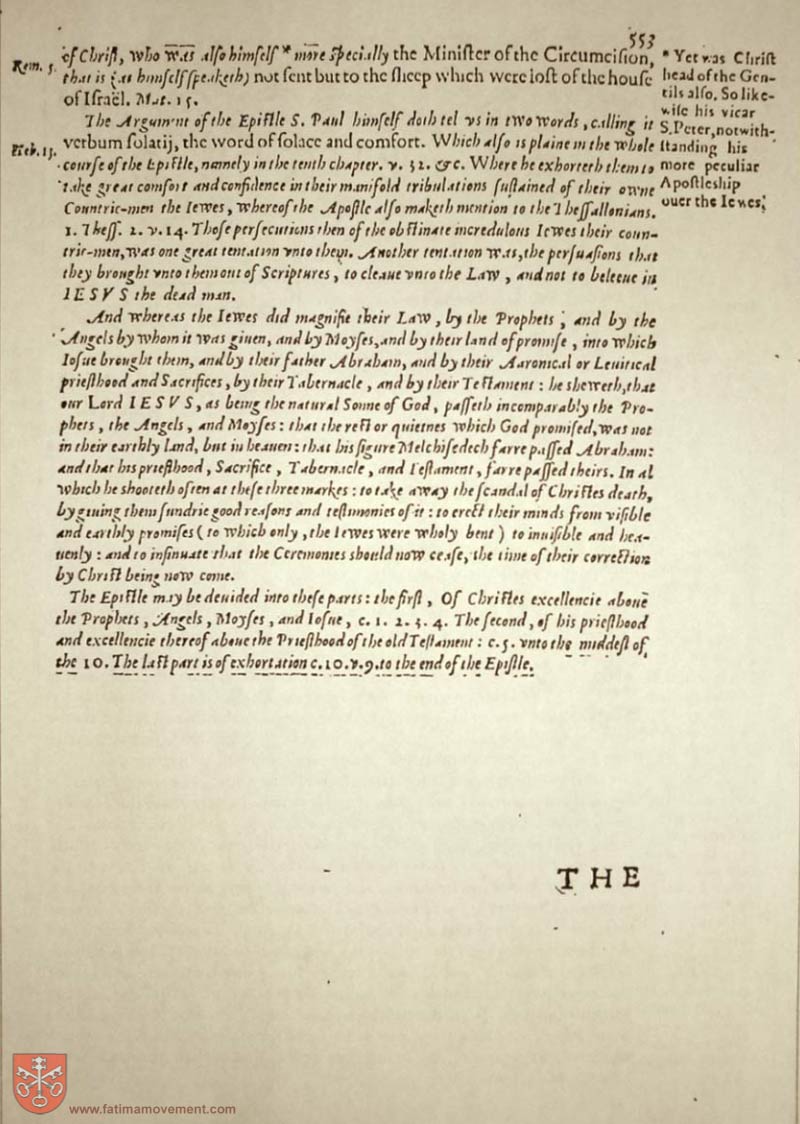 553
of Chriſt, who was alſo himſelf * more ſpecially the Miniſter of the Circumciſion,
that is (as himſelf ſpeaketh) not ſent but to the ſheep which were loſt of the houſe
of Iſraël. Mat. 15.
The Argument of the Epiſtle S. Paul himſelf doth tel vs in two words, calling it
verbum ſolatij, the word of ſolace and comfort. Which alſo is plaine in the whole
courſe of the Epiſtle, namely in the tenth chapter. v. 32. &c. Where he exhorteth them to
take great comfort and confidence in their manifold tribulations ſuſtained of their owne
Countrie-men the Iewes, whereof the Apoſtle alſo maketh mention to the Theſſallonians.
1. Theſſ. 2. v. 14. Thoſe perſecutions then of the obſtinate incredulous Iewes their coun-
trie-men, was one great tentation vnto them. Another tentation was, the perſuaſions that
they brought vnto them out of Scriptures, to cleaue vnto the Law, and not to beleeue in
IESVS the dead man.
And whereas the Iewes did magnifie their Law, by the Prophets, and by the
Angels by whom it was giuen, and by Moyſes, and by their land of promiſe, into which
Ioſue brought them, and by their father Abraham, and by their Aaronical or Leuitical
prieſthood and Sacrifices, by their Tabernacle, and by their Teſtament: he sheweth, that
our Lord IESVS, as being the natural Sonne of God, paſſeth incomparably the Pro-
phets, the Angels, and Moyſes: that the reſt or quietnes which God promiſed, was not
in their earthly land, but in heauen: that his figure Melchiſedech farre paſſed Abraham:
and that his prieſthood, Sacrifice, Tabernacle, and Teſtament, farre paſſed theirs. In al
which he shooteth often at theſe three markes: to take away the ſcandal of Chriſtes death,
by giuing them ſundrie good reaſons and teſtimonies of it: to erect their minds from viſible
and earthly promiſes (to which only, the Iewes were wholy bent) to inuiſible and hea-
uenly: and to inſinuate that the Ceremonies should now ceaſe, the time of their correction
by Chriſt being now come.
The Epiſtle may be deuided into theſe parts: the firſt, Of Chriſtes excellencie aboue
the Prophets, Angels, Moyſes, and Ioſue, c. 1. 2. 3. 4. The ſecond, of his prieſthood
and excellencie thereof aboue the Prieſthood of the old Teſtament: c. 5. vnto the middeſt of
the 10. The laſt part is of exhortation c. 10. v. 9. to the end of the Epiſtle.
Rom. 5.
Heb. 13.
* Yet was Chriſt
head of the Gen-
tils alſo. So like-
wiſe his vicar
S. Peter, notwith-
ſtanding his
more peculiar
Apoſtleship
ouer the Iewes.
THE
www.fatimamovement.com